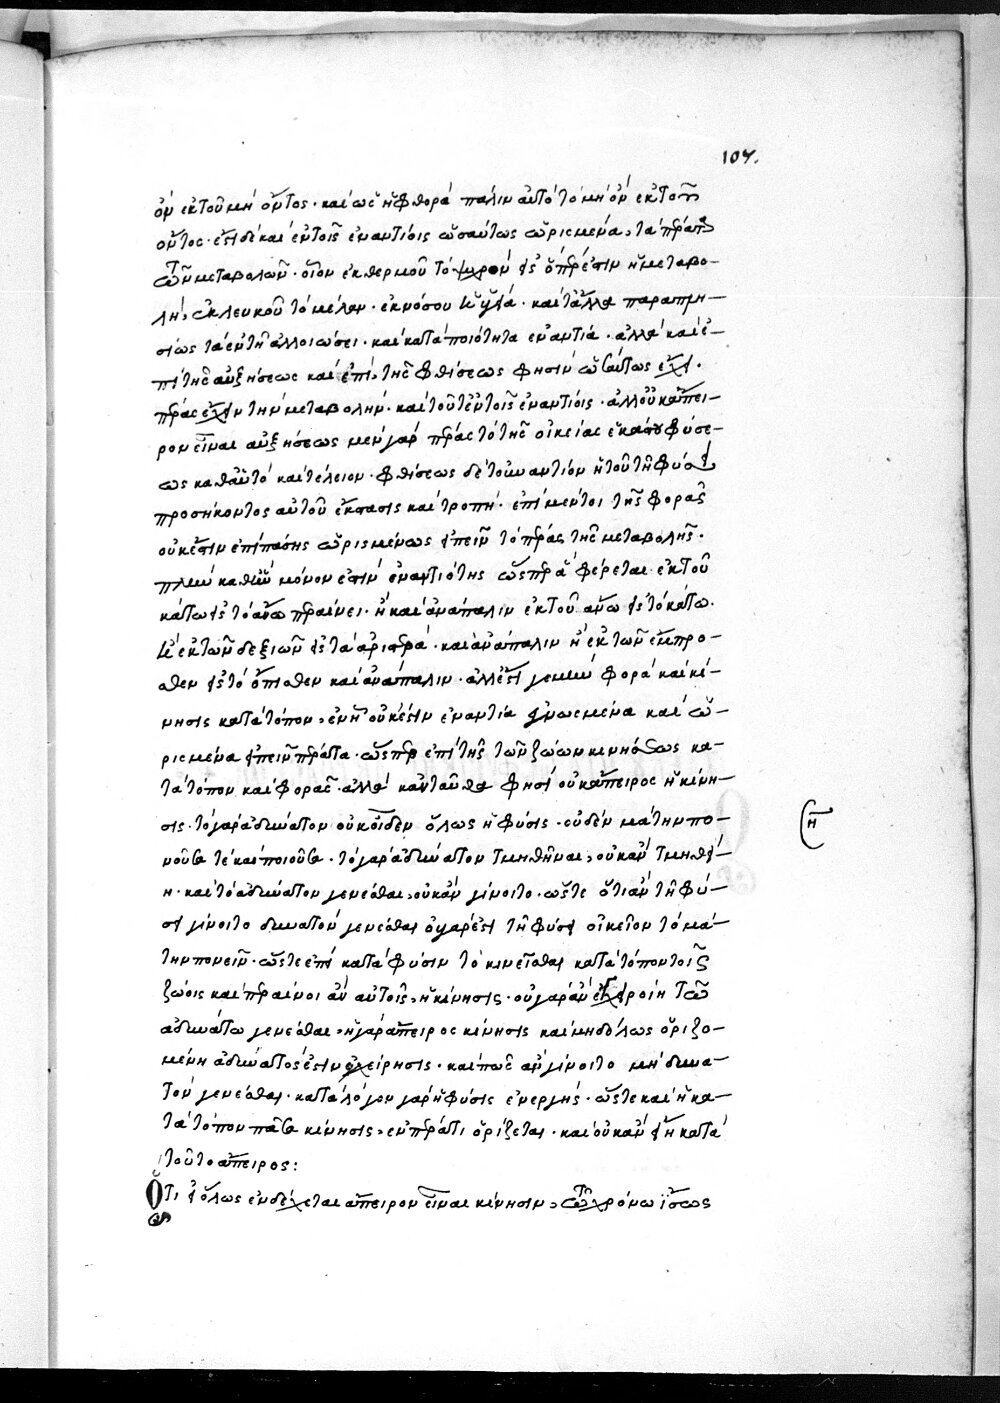 107.
ὂν ἐκ τοῦ μὴ ὄντος · καὶ ὡς ἡ φθορὰ πάλιν αὐτὸ τὸ μὴ ὂν ἐκ τοῦ
ὄντος · ἔτι δὲ καὶ ἐν τοῖς ἐναντίοις ὡσαύτως ὡρισμένα, τὰ πέρατα
τῶν μεταβολῶν · οἷον ἐκ θερμοῦ τὸ ψυχρὸν εἰς ὅπερ ἐστὶν ἡ μεταβο-
λή, ἐκ λευκοῦ τὸ μέλαν · ἐκ νόσου ἡ ὑγεία · καὶ τἄλλα παραπλη-
σίως τὰ ἐν τῇ ἀλλοιώσει · καὶ κατὰ ποιότητα ἐναντία · ἀλλὰ καὶ ἐ-
πὶ τῆς αὐξήσεως καὶ ἐπὶ τῆς φθίσεως φησὶν ὡσαύτως ἔχει ·
πέρας ἔχειν τὴν μεταβολήν · καὶ τοῦτ' ἐν τοῖς ἐναντίοις · ἀλλ' οὐκ ἄπει-
ρον εἶναι αὐξήσεως μὲν γὰρ πέρας τὸ τῆς οἰκείας ἑκάστου φύσε-
ως καθ' αὑτὸ καὶ τέλειον · φθίσεως δὲ τοὐναντίον ἡ τοῦ τῇ φύσει
προσήκοντος αὐτοῦ ἔκστασις καὶ τροπή · ἐπὶ μέντοι τῆς φορᾶς
οὐκ ἔστιν ἐπὶ πάσης ὡρισμένως εἰπεῖν τὸ πέρας τῆς μεταβολῆς ·
πλὴν καθ' ἣν μόνον ἐστὶν ἐναντιότης ὥσπερ ἃ φέρεται ἐκ τοῦ
κάτω εἰς τὸ ἄνω περαίνει · ἢ καὶ ἀνάπαλιν ἐκ τοῦ ἄνω εἰς τὸ κάτω ·
ἢ ἐκ τῶν δεξιῶν εἰς τὰ ἀριστερά · καὶ ἀνάπαλιν ἢ ἐκ τῶν ἔμπρο-
σθεν εἰς τὸ ὄπισθεν καὶ ἀνάπαλιν · ἀλλ' ἔστι φορὰ καὶ κί-
νησις κατὰ τόπον, ἐν ᾗ οὐκ ἔστιν ἐναντία καὶ ὡ-
ρισμένα εἰπεῖν πέρατα · ὥσπερ ἐπὶ τῆς τῶν ζώων κινήσεως κα-
τὰ τόπον καὶ φορᾶς · ἀλλὰ κἀνταῦθα φησὶ οὐκ ἄπειρος ἡ κίνη-
σις · τὸ γὰρ ἀδύνατον οὐκ οἶδεν ὅλως ἡ φύσις · οὐδὲν μάτην πο-
νοῦσά τε καὶ ποιοῦσα · τὸ γὰρ ἀδύνατον τμηθῆναι, οὐκ ἂν τμηθεί-
η · καὶ τὸ ἀδύνατον γενέσθαι, οὐκ ἂν γίνοιτο · ὥστε ὅτι ἂν τῇ φύ-
σει γίνοιτο δυνατὸν γενέσθαι οὐ γάρ ἐστι τῇ φύσει οἰκεῖον τὸ μά-
την πονεῖν · ὥστε ἐπεὶ κατὰ φύσιν τὸ κινεῖσθαι κατὰ τόπον τοῖς
ζώοις καὶ περαίνοι ἂν αὐτοῖς, ἡ κίνησις · οὐ γὰρ ἂν ἐγχειροίη τῷ
ἀδυνάτῳ γενέσθαι, ἡ γὰρ ἄπειρος κίνησις καὶ μηδόλως ὁριζο-
μένη ἀδύνατός ἐστιν ἐγχείρησις · καὶ πῶς ἂν γίνοιτο μὴ δυνα-
τὸν γενέσθαι · κατὰ λόγον γὰρ ἡ φύσις ἐνεργεῖ · ὥστε καὶ ἡ κα-
τὰ τόπον πᾶσα κίνησις, ἐν πέρατι ὁρίζεται · καὶ οὐκ ἂν εἴη κατὰ
τοῦτο ἄπειρος :
η
Ὅτι εἰ ὅλως ἐνδέχεται ἄπειρον εἶναι κίνησιν, τῷ χρόνῳ ἴσως